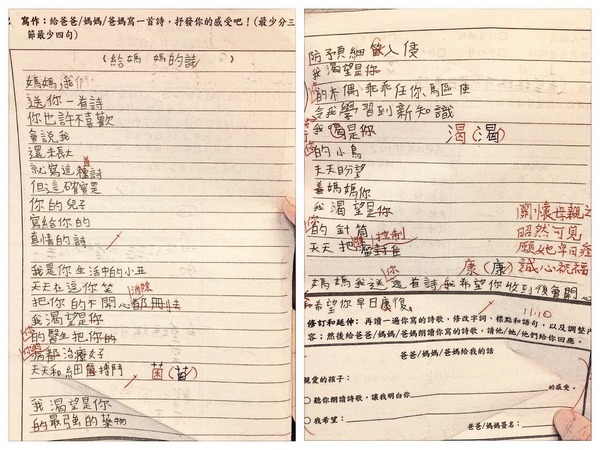 寫作：給爸爸/媽媽/爸媽寫一首詩，抒發你的感受吧！(最少分三
節最少四句)
(給媽媽的詩)
媽媽，我們
送你一首詩
你也許不喜歡
會說我
還未長大
就寫這種詩
但這確實是
你的兒子
寫給你的
真情的詩
我是你生活中的小丑
天天在逗你笑
消除
把你的不開心都
我渴望是你
的醫生把你的
病都治療好
天天和細菌搏鬥
菌(菌)
我渴望是你
的最強的藥物
防予頂細菌入侵
我渴望是你
的木偶乖乖任你
令我學習到新知識
我渴是你
渴(渴)
的小鳥
天天盼望
着媽媽你
我渴望是你
的針筒
天天把
控制
關懷母親之
昭然可見
願她早日痊
康(康)誠心祝福
你
媽媽我送這首詩我希望你收到後會開心
和希望你早日康復。
11.10
修訂和延伸：再讀一遍你寫的詩歌，修改字詞、標點和語句，以及調整內
容；然後給爸爸/媽媽/爸媽朗讀你寫的詩歌，請他/她/他們給你回應。
爸爸/媽媽/爸媽給我的話
親愛的孩子：
聽你朗讀詩歌，讓我明白你
的感受。
我希望：
爸爸/媽媽簽名：